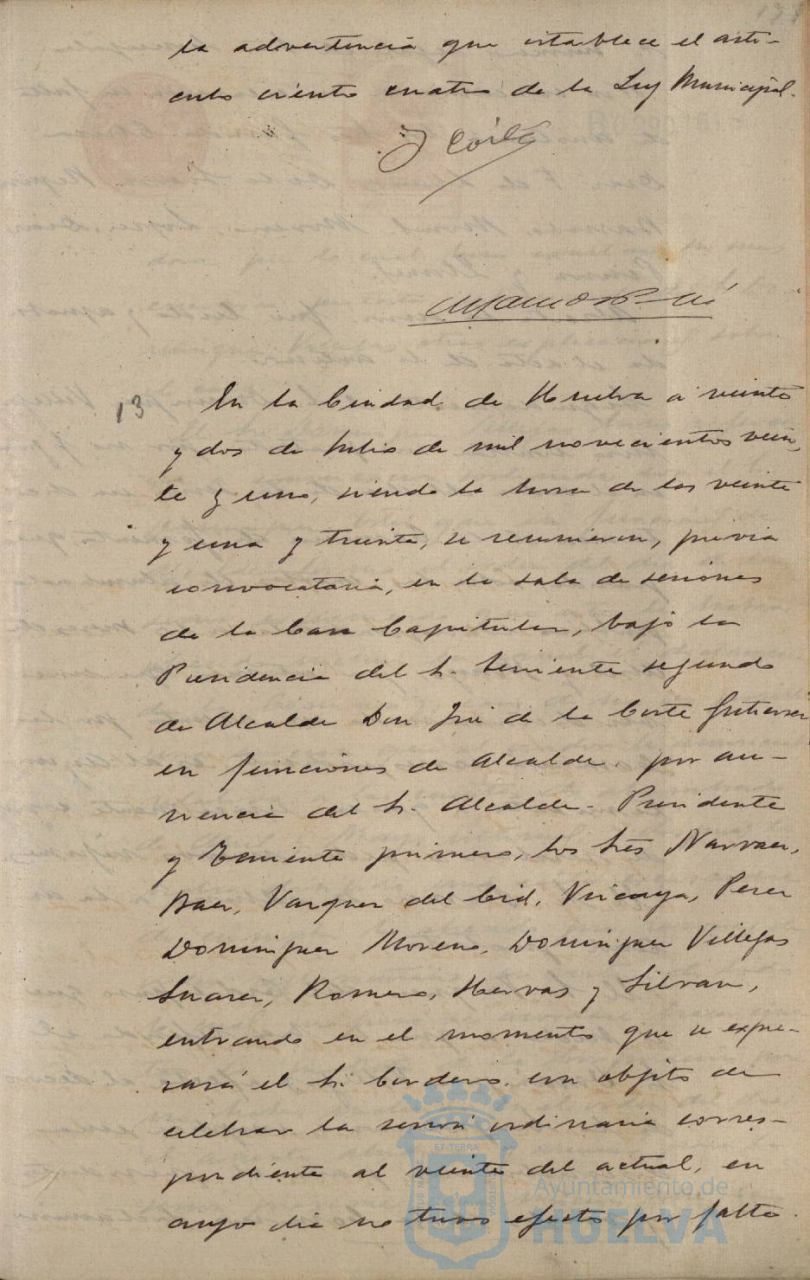 la advertencia que establece el arti-
culo ciento cuatro de la Ley Municipal.
J Corte
13 En la Ciudad de Huelva a veinte
y dos de Julio de mil novecientos vein-
te y uno, siendo la hora de las veinte
y una y treinta, se reunieron, previa
convocatoria, en la sala de sesiones
de la Casa Capitular, bajo la
Presidencia del Sr. Teniente segundo
de Alcalde Don José de la Corte Gutierrez
en funciones de Alcalde, por au-
sencia del Sr. Alcalde-Presidente
y Teniente primero, los Sres Narvaez,
Baez, Vazquez del Cid, Vizcaya, Perez
Dominguez Moreno, Dominguez Villegas
Suarez, Romero, Hervas y Silvan,
entrando en el momento que se expre-
sará el Sr. Cordero, con objeto de
celebrar la sesión ordinaria corres-
pondiente al veinte del actual, en
cuyo dia no tuvo efecto por falta
Ayuntamiento de
HUELVA